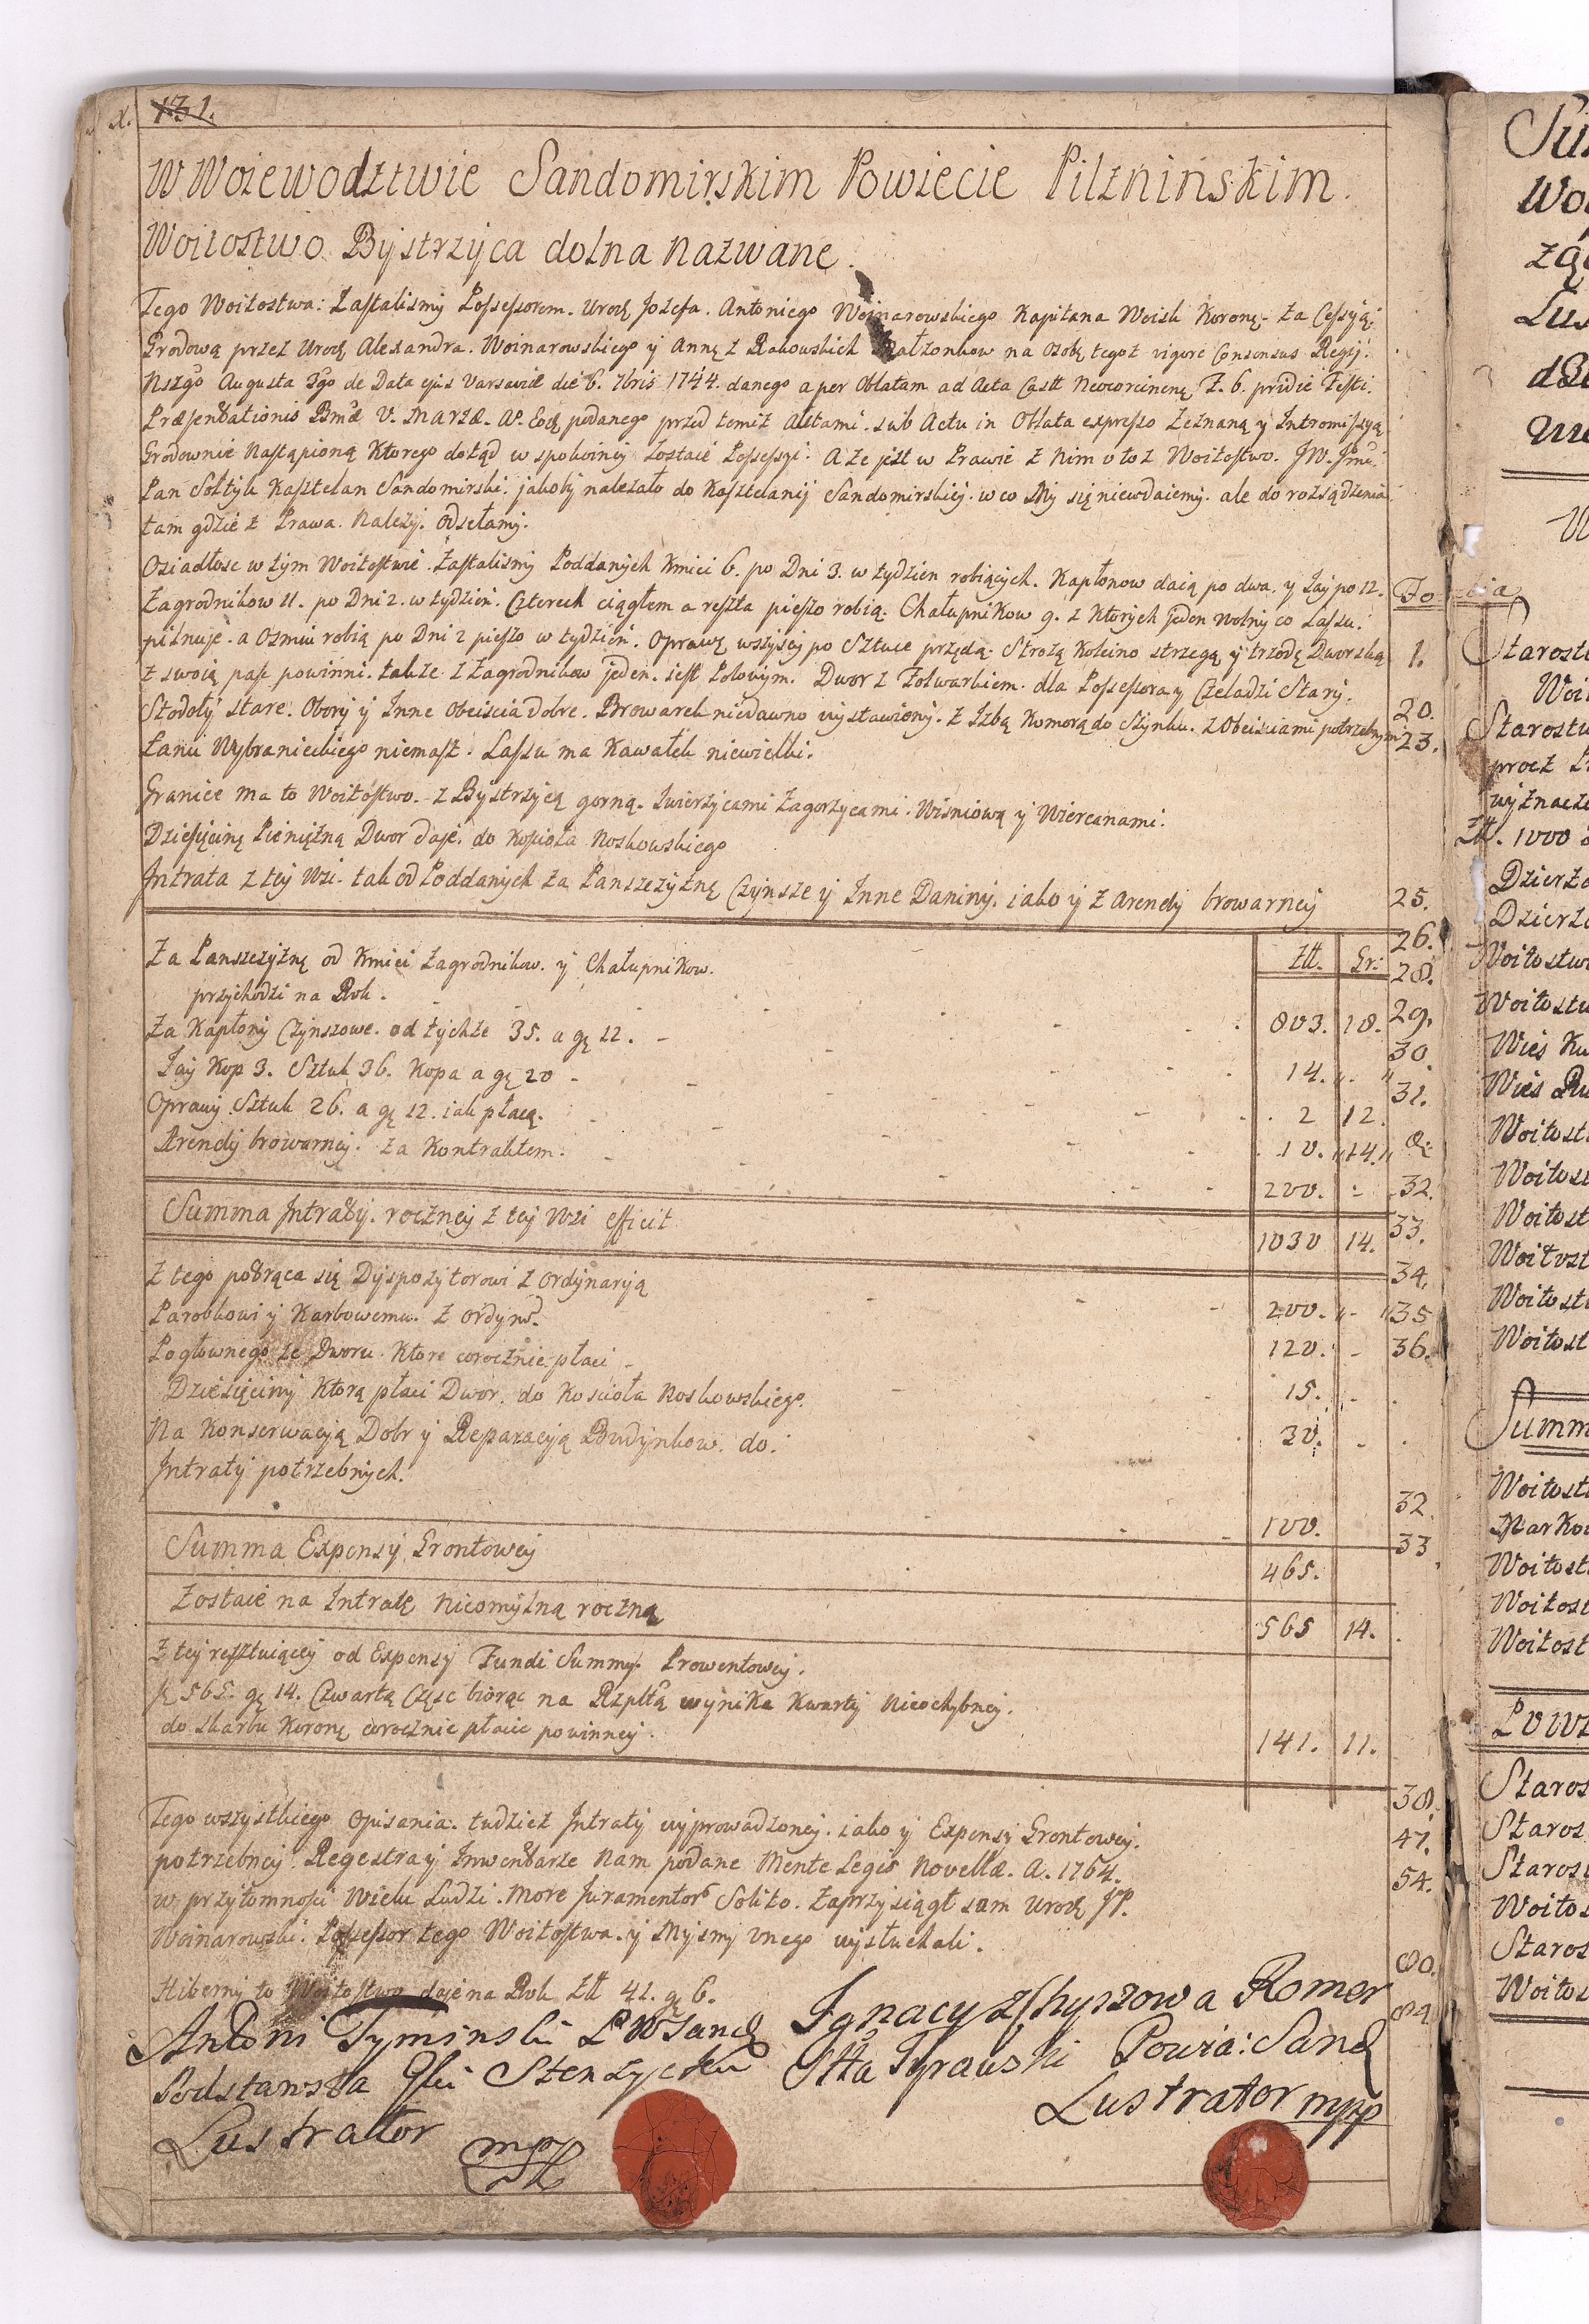 131.
W Woiewodztwie Sandomirskim Powiecie Pilzninskim.
Woitostwo Bystrzyca dolna nazwane.
Tego Woitostwa: Zastalismy Possessorem. Urodz Jozefa. Antoniego Woinarowskiego Kapitana Woisk Koron- Za Cessyją
Grodową przez Urodz Alexandra. Woinarowskiego y Annę z Rakowskich Małżonkow na osobę tegoż vigore Consensus Regij.
Nszgo Augusta 3go de Data ejus Varsaviæ die 6. 7bris 1744. danego a per Oblatam ad Acta Castr. F. 6. pridie Festi.
Præsentationis Bmæ V. Mariæ. Ao. Eodę podanego przed temiż Aktami. sub Actu in Oblata expresso Zeznaną y Intromissyą
Grodownie Nastąpioną Ktorego dotąd w spokoiney Zostaie Possessyi. A że jest w Prawie z Nim o toż Woitostwo. JW. Jmć.
Pan Sołtyk Kasztelan Sandomirski. jakoby należało do Kasztelanij Sandomirskiej. w co My się niewdaiemy. ale do rozsądzenia
tam gdzie z Prawa. Należy. odsełamy.
Osiadłosc w tym Woitostwie. Zastalismy Poddanych Kmieci 6. po Dni 3. w tydzien robiących. Kapłonow daią po dwa. y Jay po 12.
Zagrodnikow 11. po Dni 2. w tydzień. Czterech ciągłem a reszta pieszo robią. Chałupnikow 9. z Ktorych jeden wolny co Lassu.
pilnuje. a osmiu robią po Dni 2 pieszo w tydzień. Oprawę wszyscy po Sztuce przędą. Strożą Koleino strzegą y trzodę Dworską
z swoią paść powinni. także z Zagrodnikow jeden. jest Polowym. Dwor z Folwarkiem. dla Possessora y Czeladzi Stary.
Stodoły stare. Obory y Inne Obeiscia dobre. Browarek niedawno wystawiony. z Izbą Komorą do Szynku. z Obeisciami potrzebnymi
Łanu Wybranieckiego niemasz. Lassu ma Kawałek niewielki.
Granice ma to Woitostwo. z Bystrzycą gorną. Iwierzycami Zagorzycami. Wisniową y Wiercanami.
Dziesięcinę Pieniężną Dwor daje. do Kosciola Noskowskiego
Intrata z tey Wsi. tak od Poddanych za Panszczyznę Czynsze y Inne Daniny. iako y z Arendy browarney
Zll. Gr:
Za Panszczyznę od Kmieci Zagrodnikow. y Chałupnikow.
przychodzi na Rok. 803. 18.
Za Kapłony Czynszowe. od tychże 35. a gr 12. 14. „. „
Jay Kop 3. Sztuk 36. Kopa a gr 20 2 12.
Oprawy Sztuk 26. a gr 12. iak płacą. 10. „14. „
Arendy browarney. za Kontraktem. 200. -
Summa Intraty. roczney z tey Wsi efficit 1030 14.
Z tego potrąca się Dyspozytorowi z ordynaryą 200. „-
Parobkowi y Karbowemu. z Ordyn. 120. -
Pogłownego ze Dworu. Ktore corocznie płaci 15. -
Dziesięciny Ktorą płaci Dwor. do Kosciola Noskowskiego. 30. -
Na Konserwacyą Dobr y Reparacyą Budynkow. do
Intraty potrzebnych. 100.
Summa Expensy Grontowey 465.
Zostaie na Intratę Nieomylną roczną 565 14.
Z tey resztuiącey od Expensy Fundi Summy. Prowentowey.
fl 565. gr 14. Czwartą Częsc biorąc na Rzpltą wynika Kwarty Nieochybney.
do Skarbu Koron corocznie płacic powinney. 141. 11.
Tego wszystkiego Opisania. tudzież Intraty wyprowadzoney. iako y Expensy Grontowey.
potrzebney. Regestra y Inwentarze Nam podane Mente Legis Novellæ. A. 1764.
w przytomnosci Wielu Ludzi. More Juramentor Solito. Zaprzysiągł sam Urodz JP.
Woinarowski. Possessor tego Woitostwa. y Mysmy Onego wysłuchali.
Hiberny to Woitostwo daje na Rok Zll 41. gr 6.
Antoni Tyminski P W Sand
Podstarosta Stenzycki
Lustrator mpp
Ignacy z Chyszowa Romer
Stta Tyrawski Powia: Sand
Lustrator mpp
Fo
1.
20.
23.
25.
26.
28.
29.
30
31.
32.
33.
34.
35
36.
32.
33
38.
47.
54.
80.
84.
Starostw
Woi
Starostw
1000
Dzierża
Dzierża
Woitostw
Woitostw
Wieś
Wieś
Woitost
Woitost
Woitost
Woitost
Woitost
Woitost
Summ
Woitost
Woitost
Woitost
Woitost
Staros
Staros
Staros
Woitos
Staros
Woitos